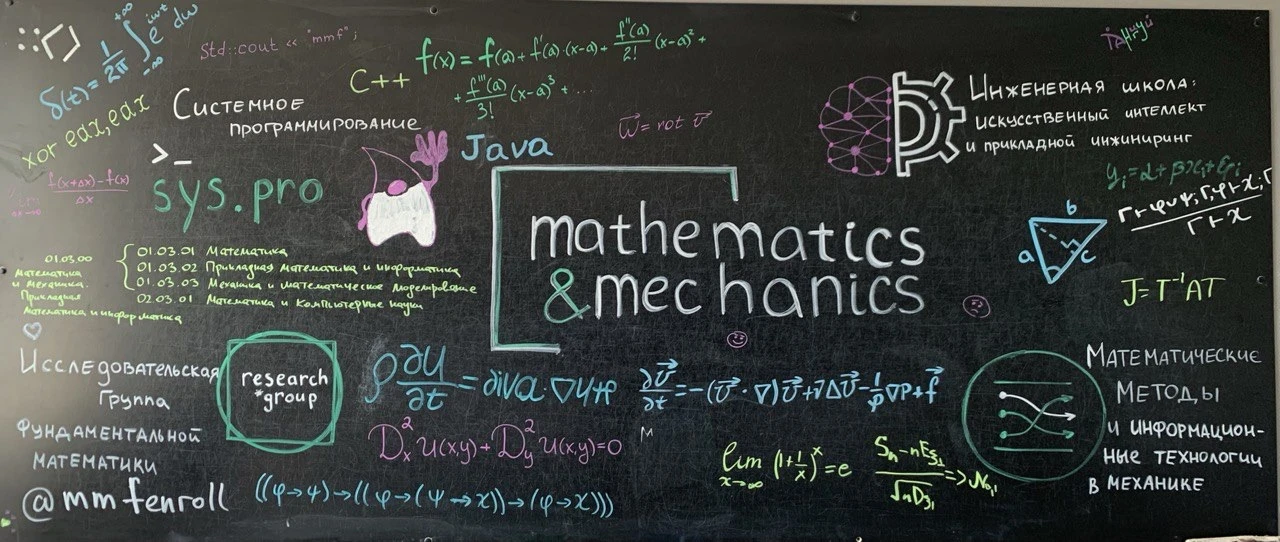 δ(t) = 1/2π ∫_{-∞}^{+∞} e^{iωt} dω
xor eax, eax
Std::cout << "mmf";
C++
f(x) = f(a) + f'(a)·(x-a) + f''(a)/2! (x-a)² +
+ f'''(a)/3! (x-a)³ + ...
Системное
программирование
>_
sys.pro
Java
w⃗ = rot v⃗
Инженерная школа:
искусственный интеллект
и прикладной инжиниринг
y_i = α + βx_i + ε_i
f(x+Δx) - f(x)
Δx
a
b
c
Γ ⊢ φ∪ψ; Γ, φ ⊢ χ; Γ
Γ ⊢ χ
J = T⁻¹AT
mathematics
& mechanics
01.03.00
Математика
и механика.
Прикладная
математика и информатика
01.03.01 Математика
01.03.02 Прикладная математика и информатика
01.03.03 Механика и математическое моделирование
02.03.01 Математика и компьютерные науки
Исследовательская
группа
фундаментальной
математики
@mmfenroll
research
*group
ρ ∂u/∂t = div a·∇u + ρ
∂v⃗/∂t = -(v⃗·∇)v⃗ + νΔv⃗ - 1/ρ ∇p + f⃗
D_x² u(x,y) + D_y² u(x,y) = 0
м
((φ→ψ)→((φ→(ψ→χ))→(φ→χ)))
lim_{x→∞} (1+1/x)^x = e
S_n - nEξ_1 / √nDξ_1 => N_{0,1}
Математические
методы
и информацион-
ные технологии
в механике